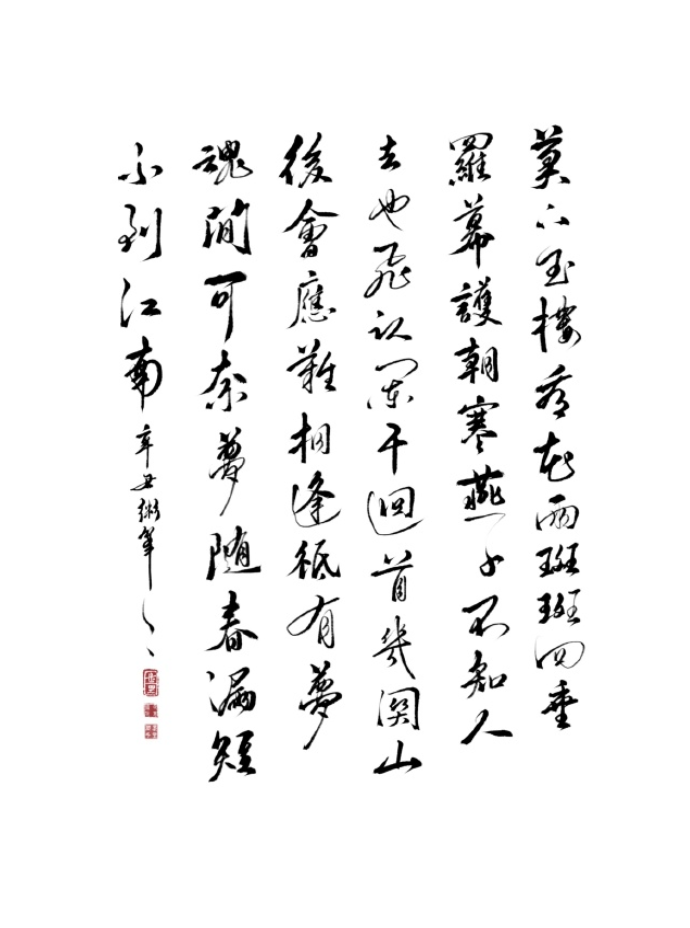 莫上玉樓看花雨斑斑四垂
羅幕護朝寒燕子不知人
去也飛認闌干迴首幾關山
後會應難相逢祗有夢
魂間可奈夢随春漏短
不到江南 辛丑